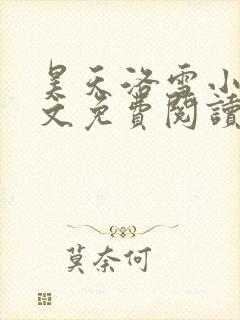 昊天洛雪小
文免費閱讀
莫奈何